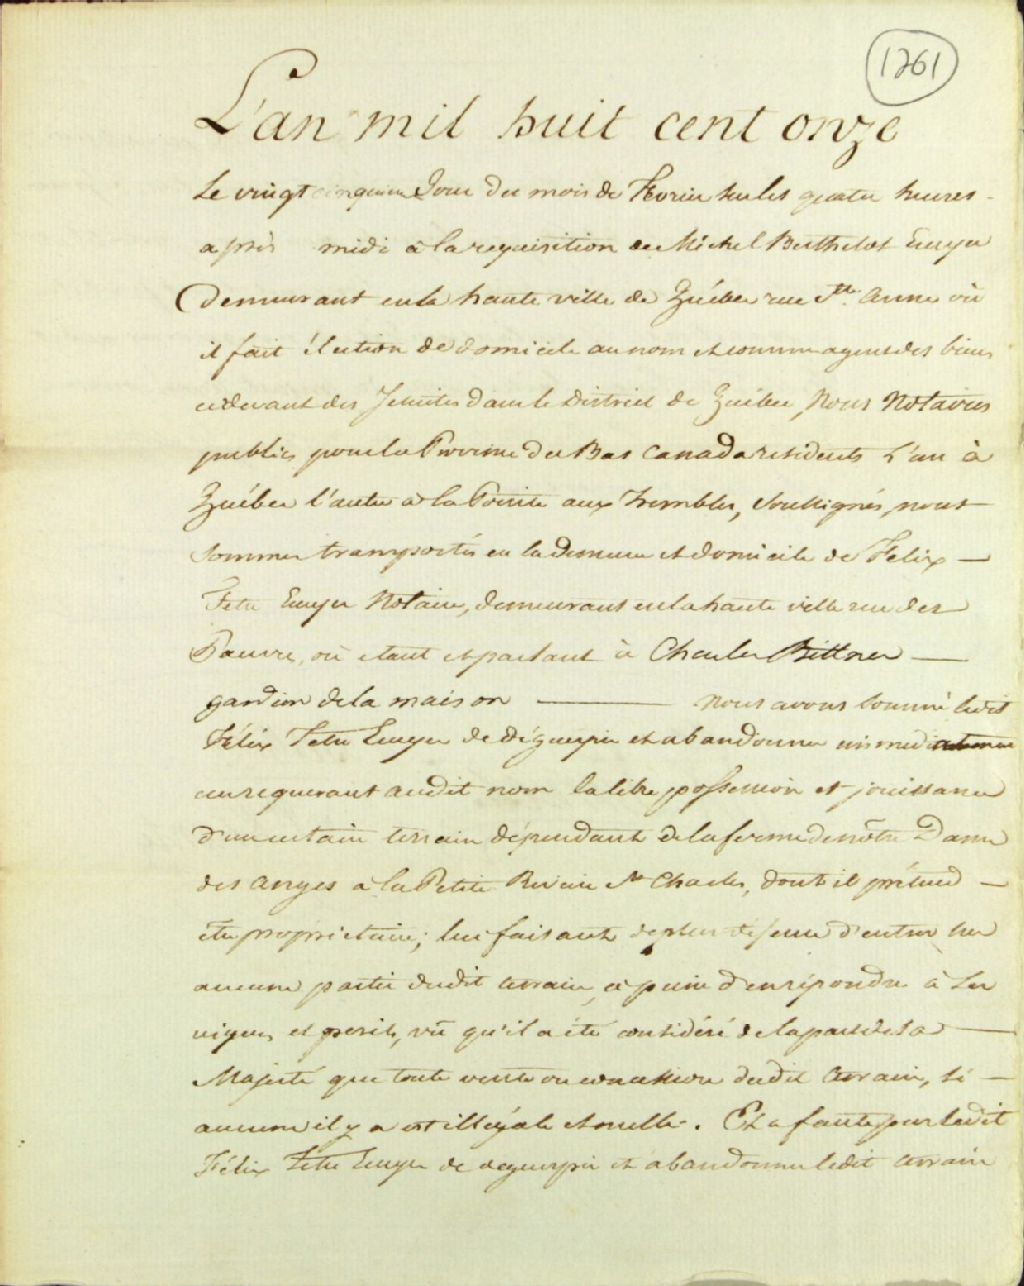 1261
L'an mil huit cent onze
Le vingt cinquieme Jour du mois de Fevrier sur les quatre heures
après midi à la requisition de Michel Berthelot Ecuyer
demeurant en la haute ville de Québec rue Ste. Anne où
il fait élection de domicile au nom et comme agent des biens
cidevant des Jesuites dans le District de Québec, Nous Notaires
publics pour la Province du Bas Canada residents L'un à
Québec l'autre à la Pointe aux Trembles, Soussignés, nous
sommes transportés en la demeure et domicile de Felix
Tetu Ecuyer Notaire, demeurant en la haute ville rue des
Pauvres, où etant et parlant à Charles Bittner
gardien de la maison nous avons sommé ledit
Félix Tetu Ecuyer de déguerpir et abandonner
au requerant audit nom la libre possession et jouissance
d'un certain terrain dépendant de la ferme de nôtre Dame
des Anges à la Petite Riviere St Charles, dont il prétend
être proprietaire; lui faisant de plus défense d'entrer sur
aucune partie dudit terrain, à peine d'en répondre à ses
risques et perils, vû qu'il a été considéré de la part de Sa
Majesté que toute vente ou concession dudit terrain, si
aucune il y a est illégale et nulle. Et a faute par ledit
Félix Têtu Ecuyer de deguerpir et abandonner ledit terrain